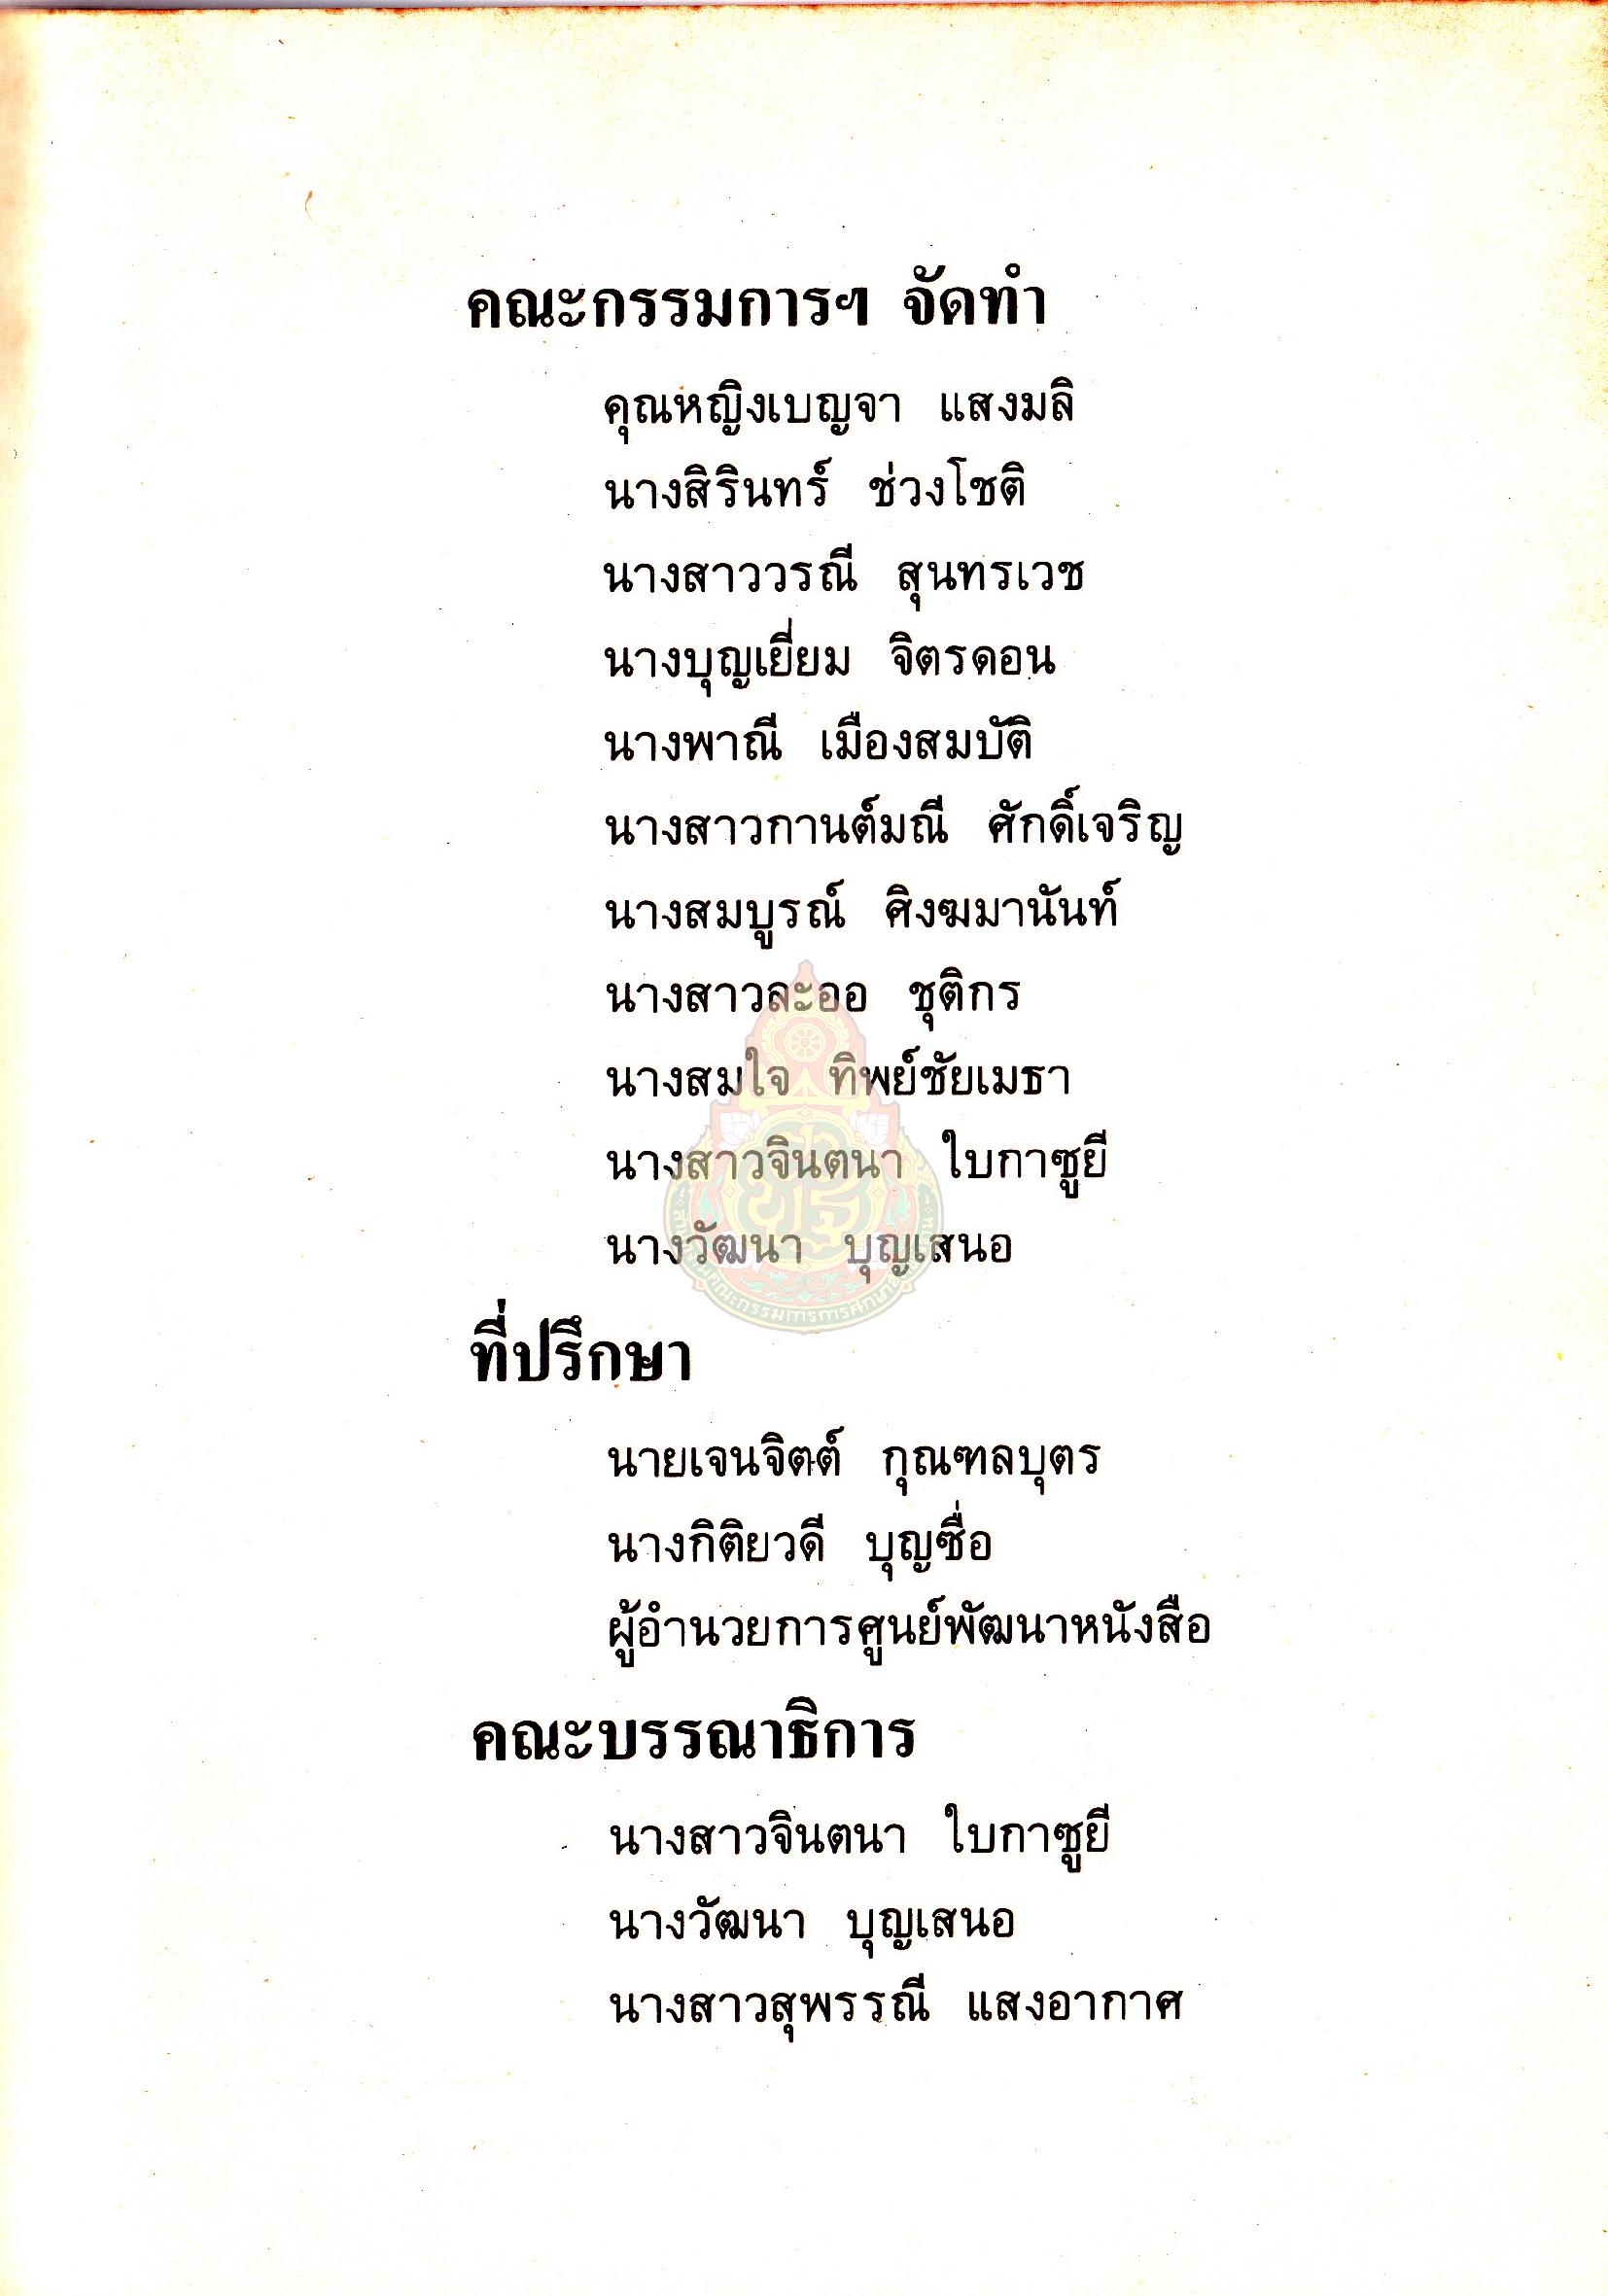 คณะกรรมการฯ จัดทำ
คุณหญิงเบญจา แสงมลิ
นางสิรินทร์ ช่วงโชติ
นางสาววรณี สุนทรเวช
นางบุญเยี่ยม จิตรดอน
นางพาณี เมืองสมบัติ
นางสาวกานต์มณี ศักดิ์เจริญ
นางสมบูรณ์ ศิงฆมานันท์
นางสาวละออ ชุติกร
นางสมใจ ทิพย์ชัยเมธา
นางสาวจินตนา ใบกาซูยี
นางวัฒนา บุญเสนอ
ที่ปรึกษา
นายเจนจิตต์ กุณฑลบุตร
นางกิติยวดี บุญซื่อ
ผู้อำนวยการศูนย์พัฒนาหนังสือ
คณะบรรณาธิการ
นางสาวจินตนา ใบกาซูยี
นางวัฒนา บุญเสนอ
นางสาวสุพรรณี แสงอากาศ